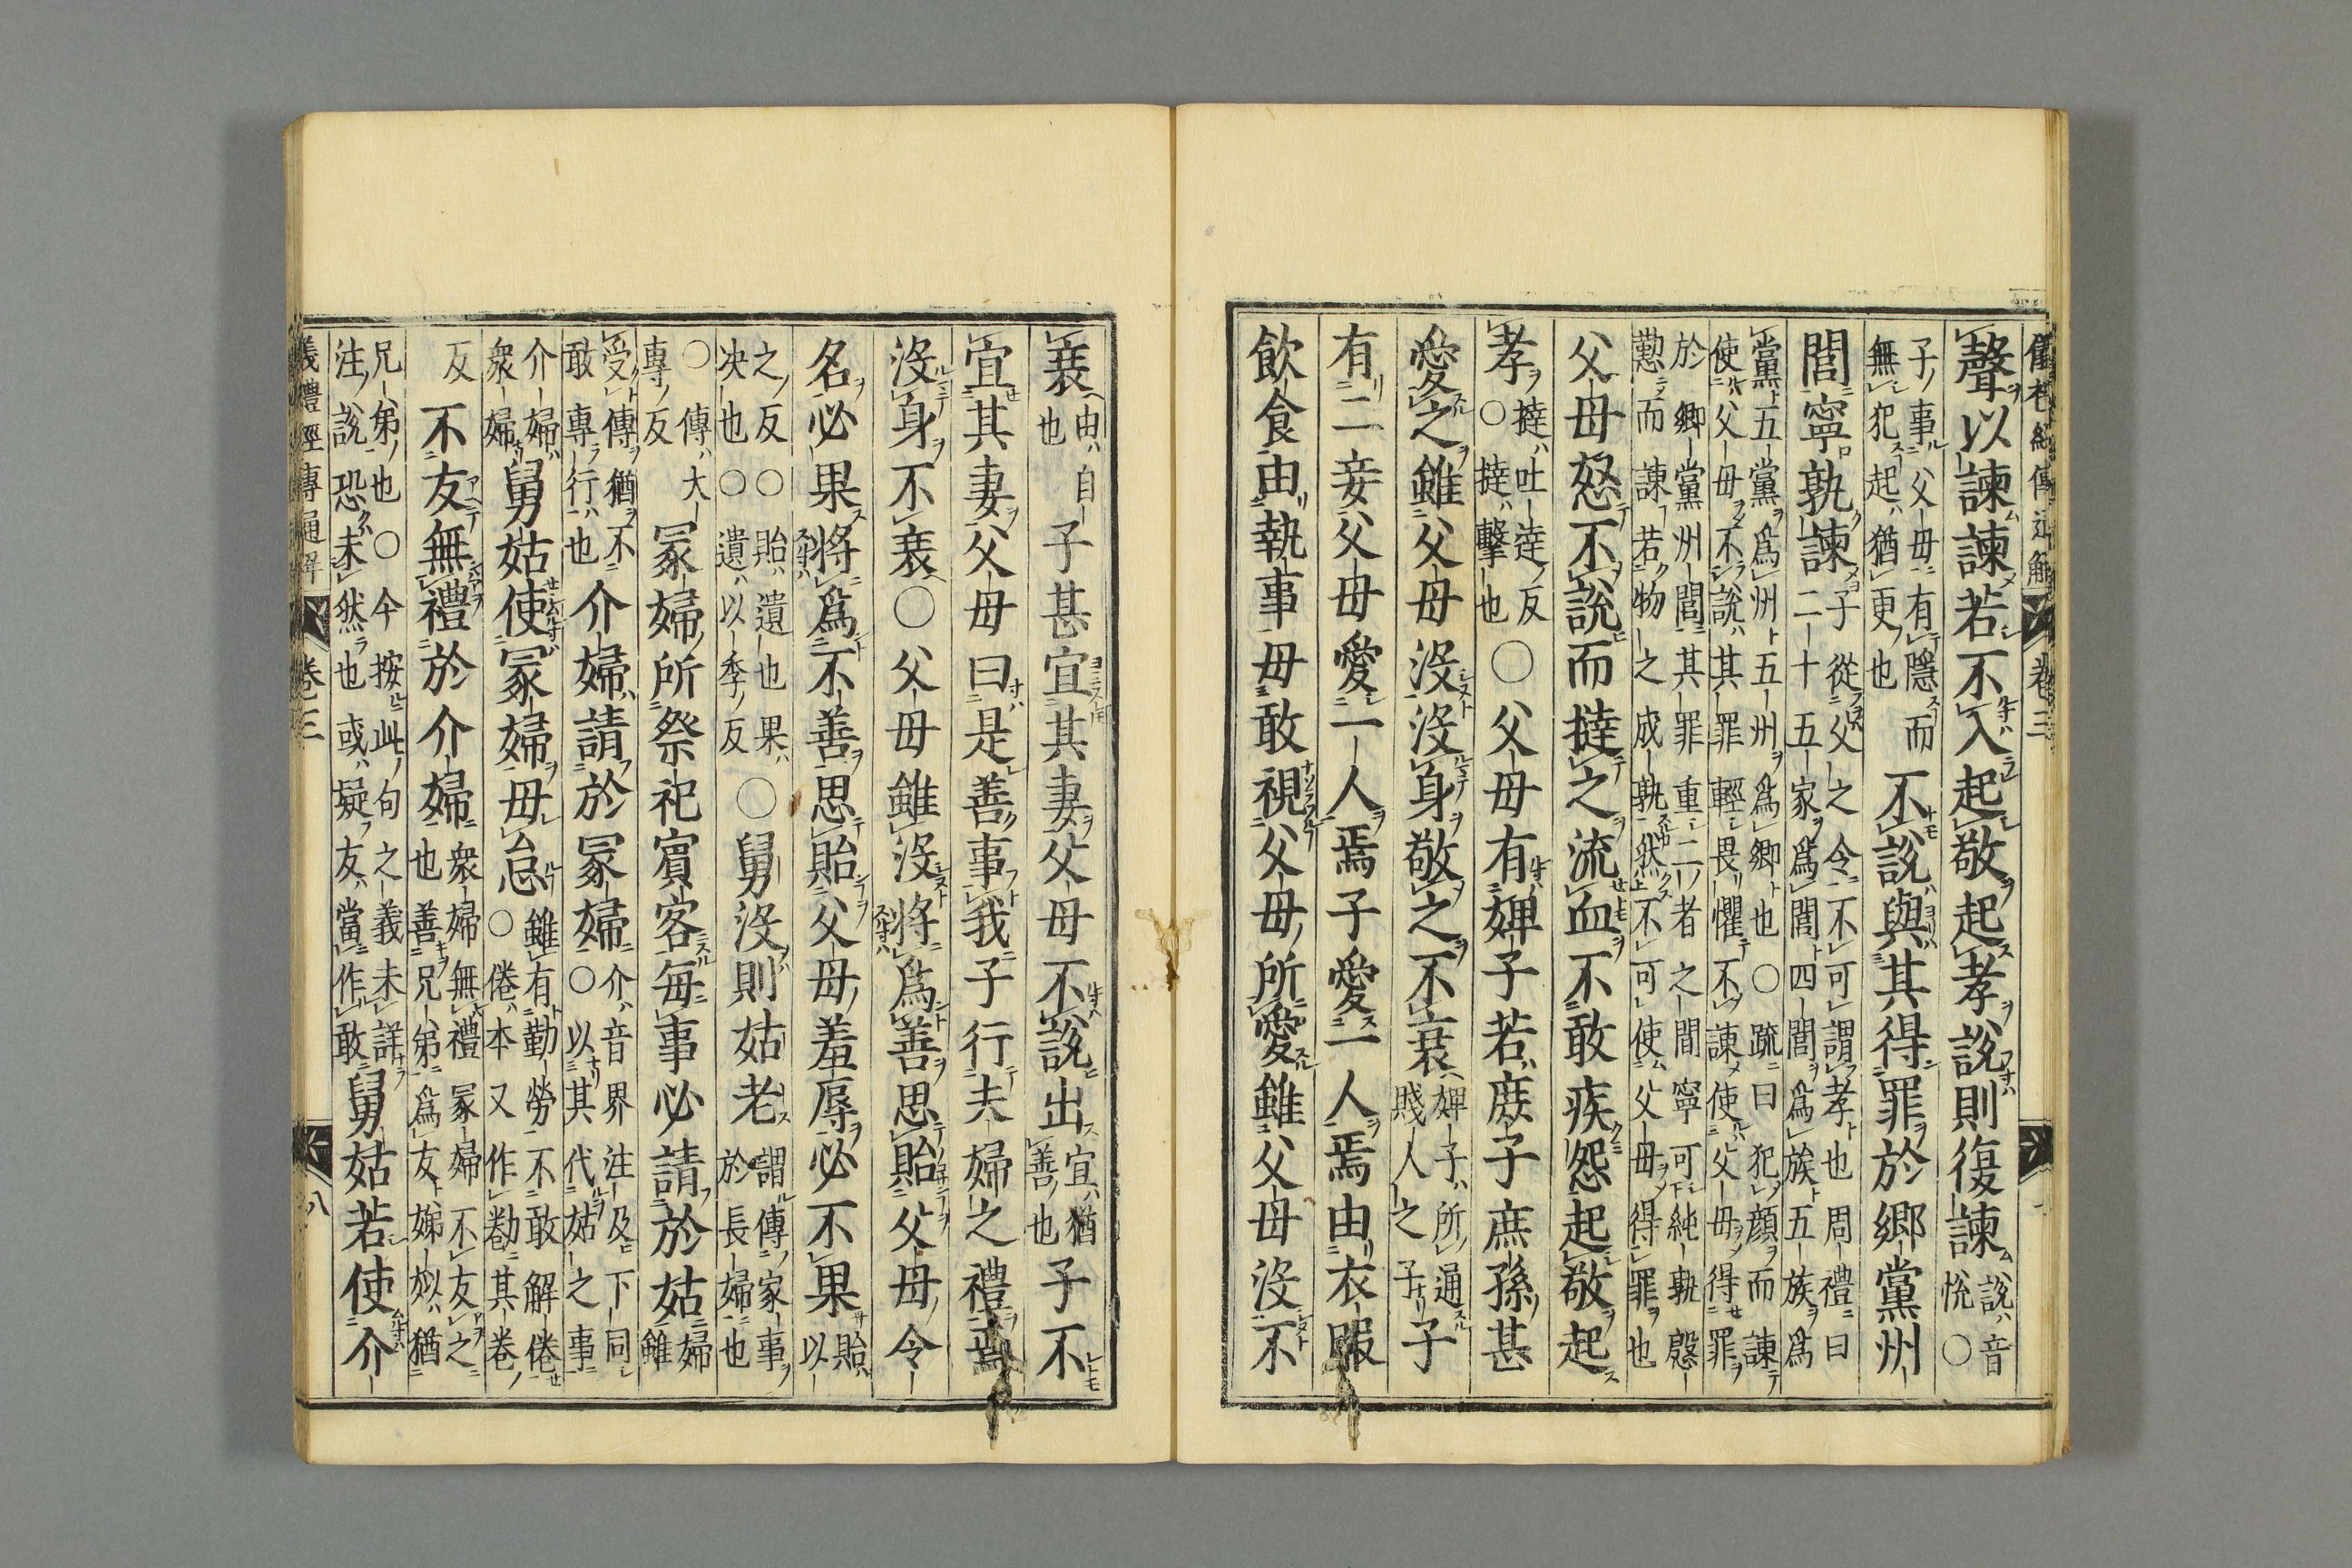 儀禮經傳通解 卷三
聲以諫諫若不入起敬起孝說則復諫說音悅○
子事父母有隱而無犯起猶更也不說與其得罪於鄉黨州
閭寧孰諫子從父之令不可謂孝也周禮曰二十五家爲閭四閭爲族五族爲
黨五黨爲州五州爲鄉也○疏曰犯顔而諫使父母不說其罪輕畏懼不諫使父母得罪
於鄉黨州閭其罪重二者之間寧可純孰慇懃而諫若物之成孰然不可使父母得罪也
父母怒不說而撻之流血不敢疾怨起敬起
孝撻吐達反○撻擊也○父母有婢子若庶子庶孫甚
愛之雖父母沒沒身敬之不衰婢子所通賤人之子子
有二妾父母愛一人焉子愛一人焉由衣服
飲食由執事毋敢視父母所愛雖父母沒不
衰由自也子甚宜其妻父母不說出宜猶善也子不
宜其妻父母曰是善事我子行夫婦之禮焉
沒身不衰○父母雖沒將爲善思貽父母令
名必果將爲不善思貽父母羞辱必不果貽以
之反○貽遺也果决也○遺以季反○舅沒則姑老謂傳家事於長婦也
○傳大專反冢婦所祭祀賓客每事必請於姑婦雖
受傳猶不敢專行也介婦請於冢婦介音界注及下同○以其代姑之事
介婦衆婦舅姑使冢婦毋怠雖有勤勞不敢解倦○倦本又作勌其卷
反不友無禮於介婦衆婦無禮冢婦不友之也善兄弟爲友娣姒猶
兄弟也○今按此句之義未詳注說恐未然也或疑友當作敢舅姑若使介
儀禮經傳通解 卷三 八